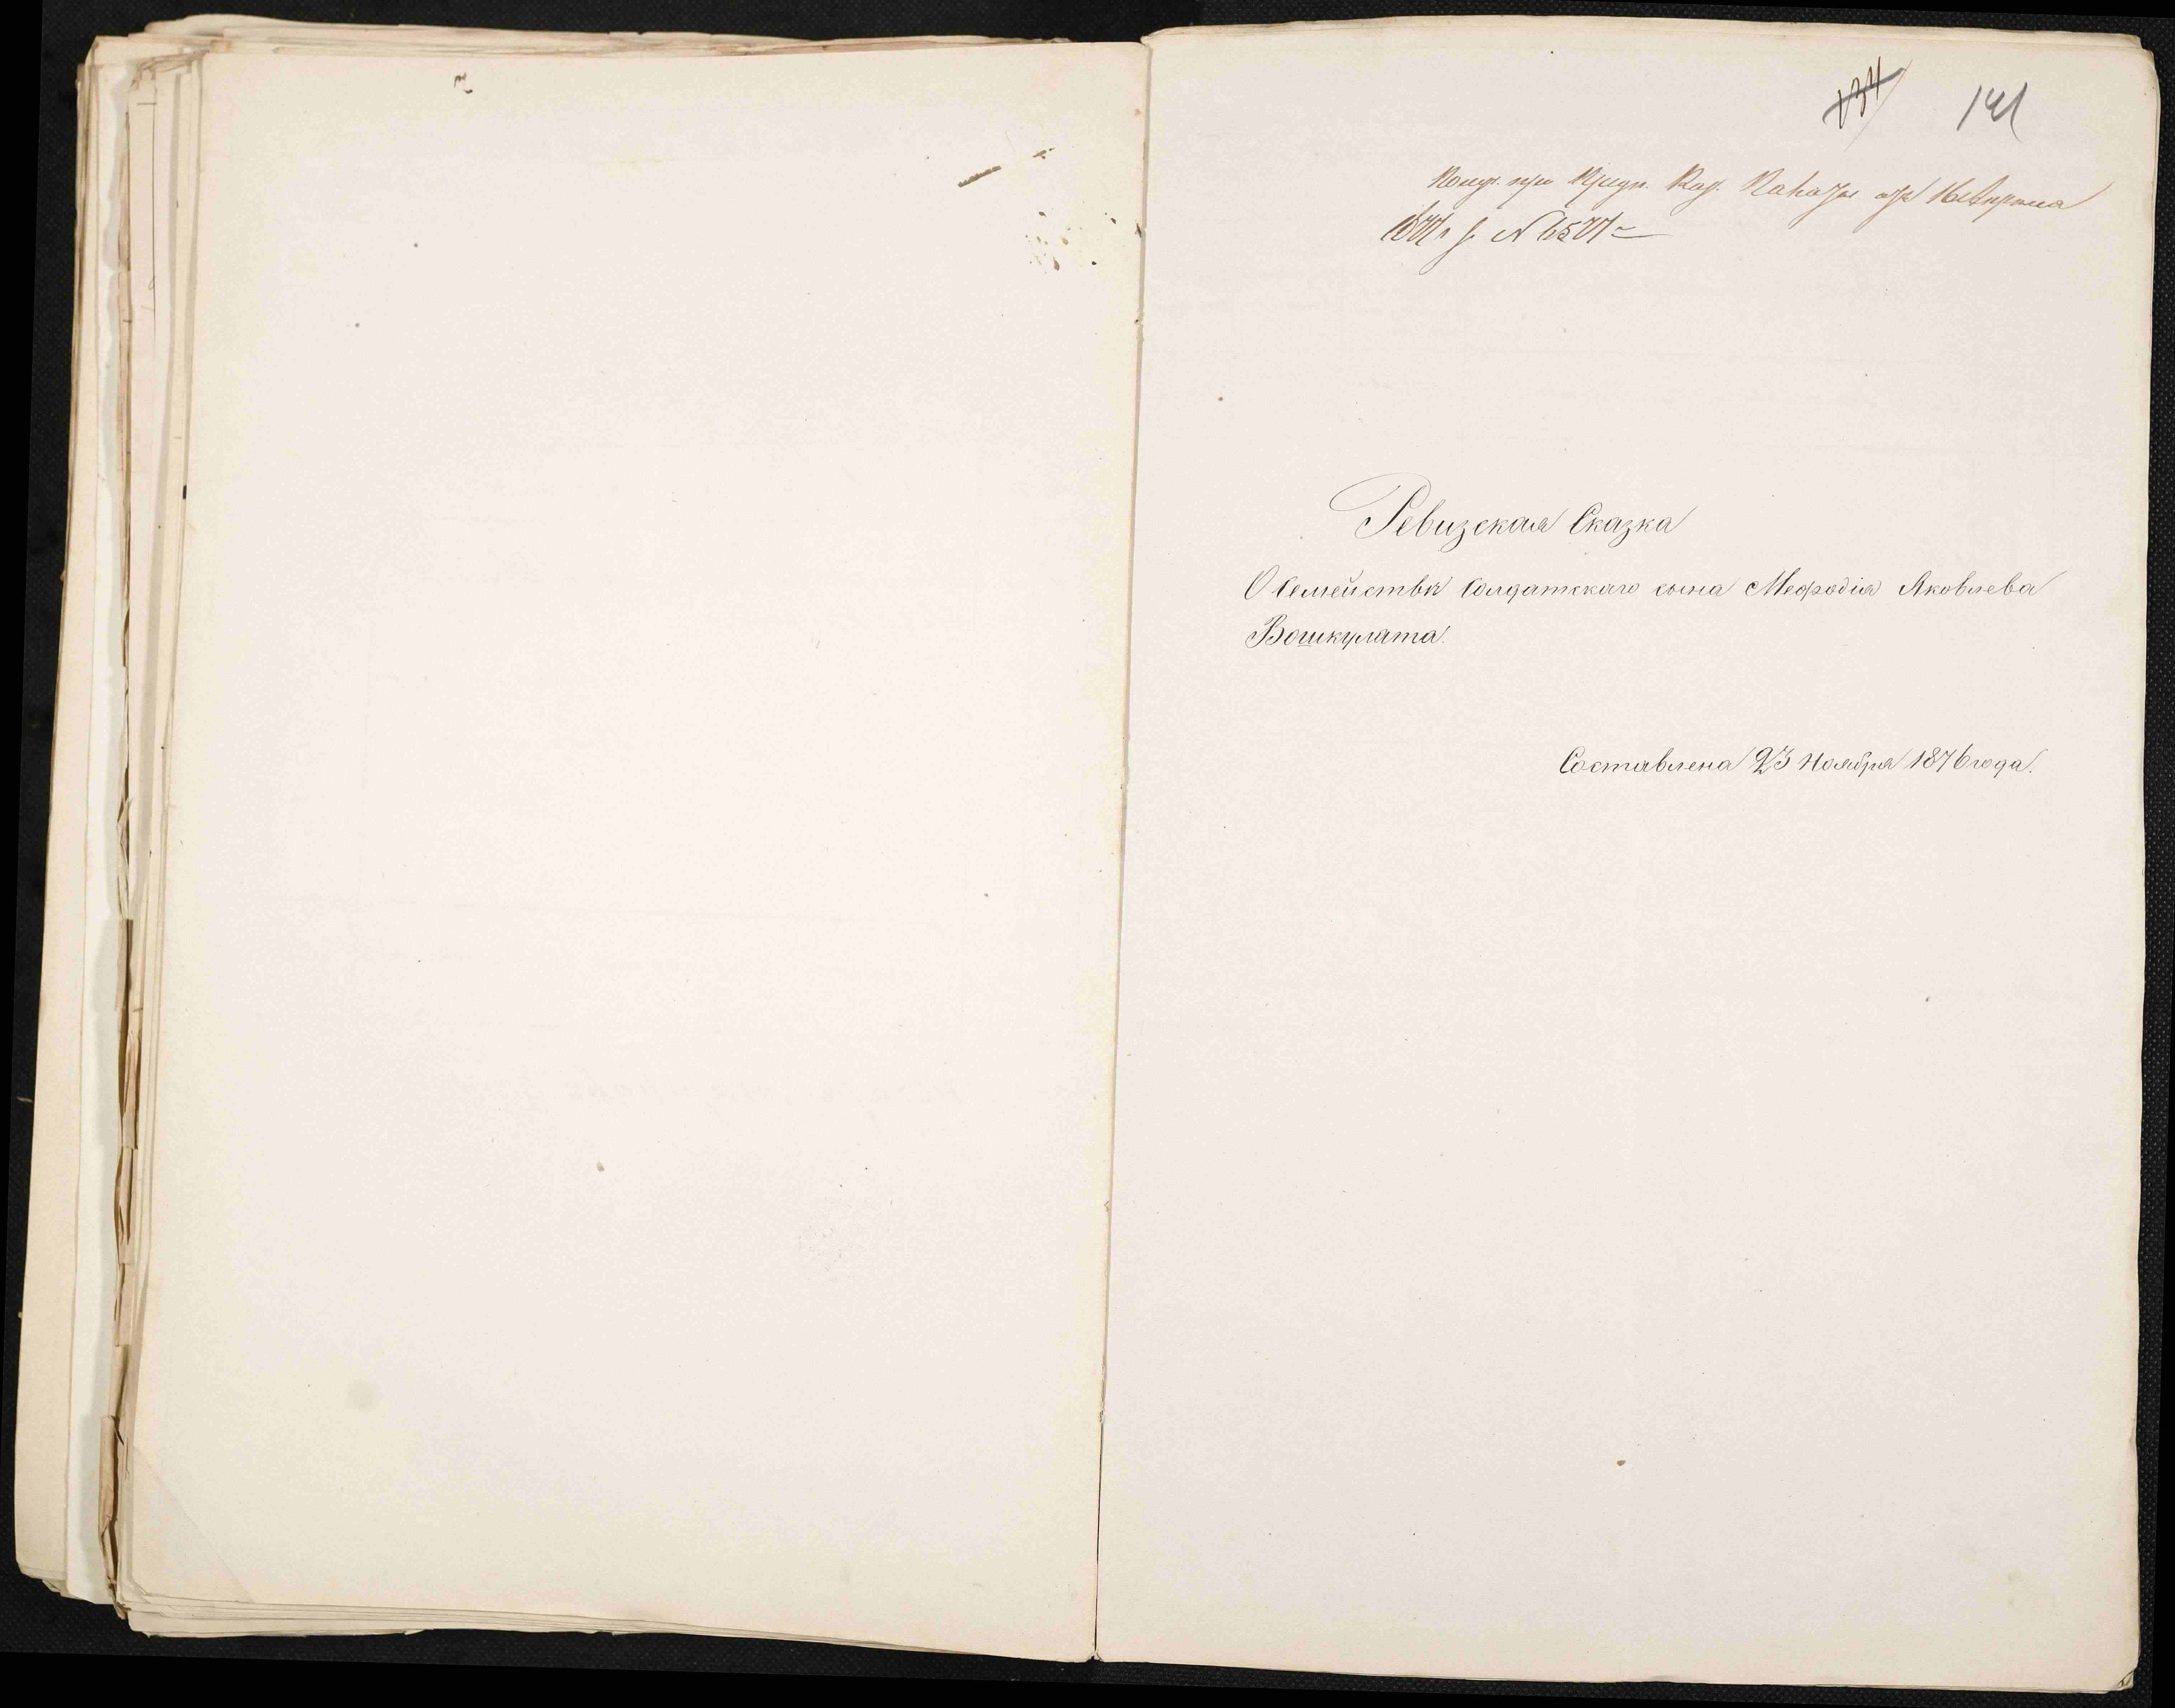 134 141
Получ. при Предп. Каз. Палаты отъ 16 Апреля
1877 г. за № 6577
Ревизская Сказка
О Семействѣ Солдатскаго сына Мефодія Яковлева
Вошкулата.
Составлена 23 Ноября 1876 года.